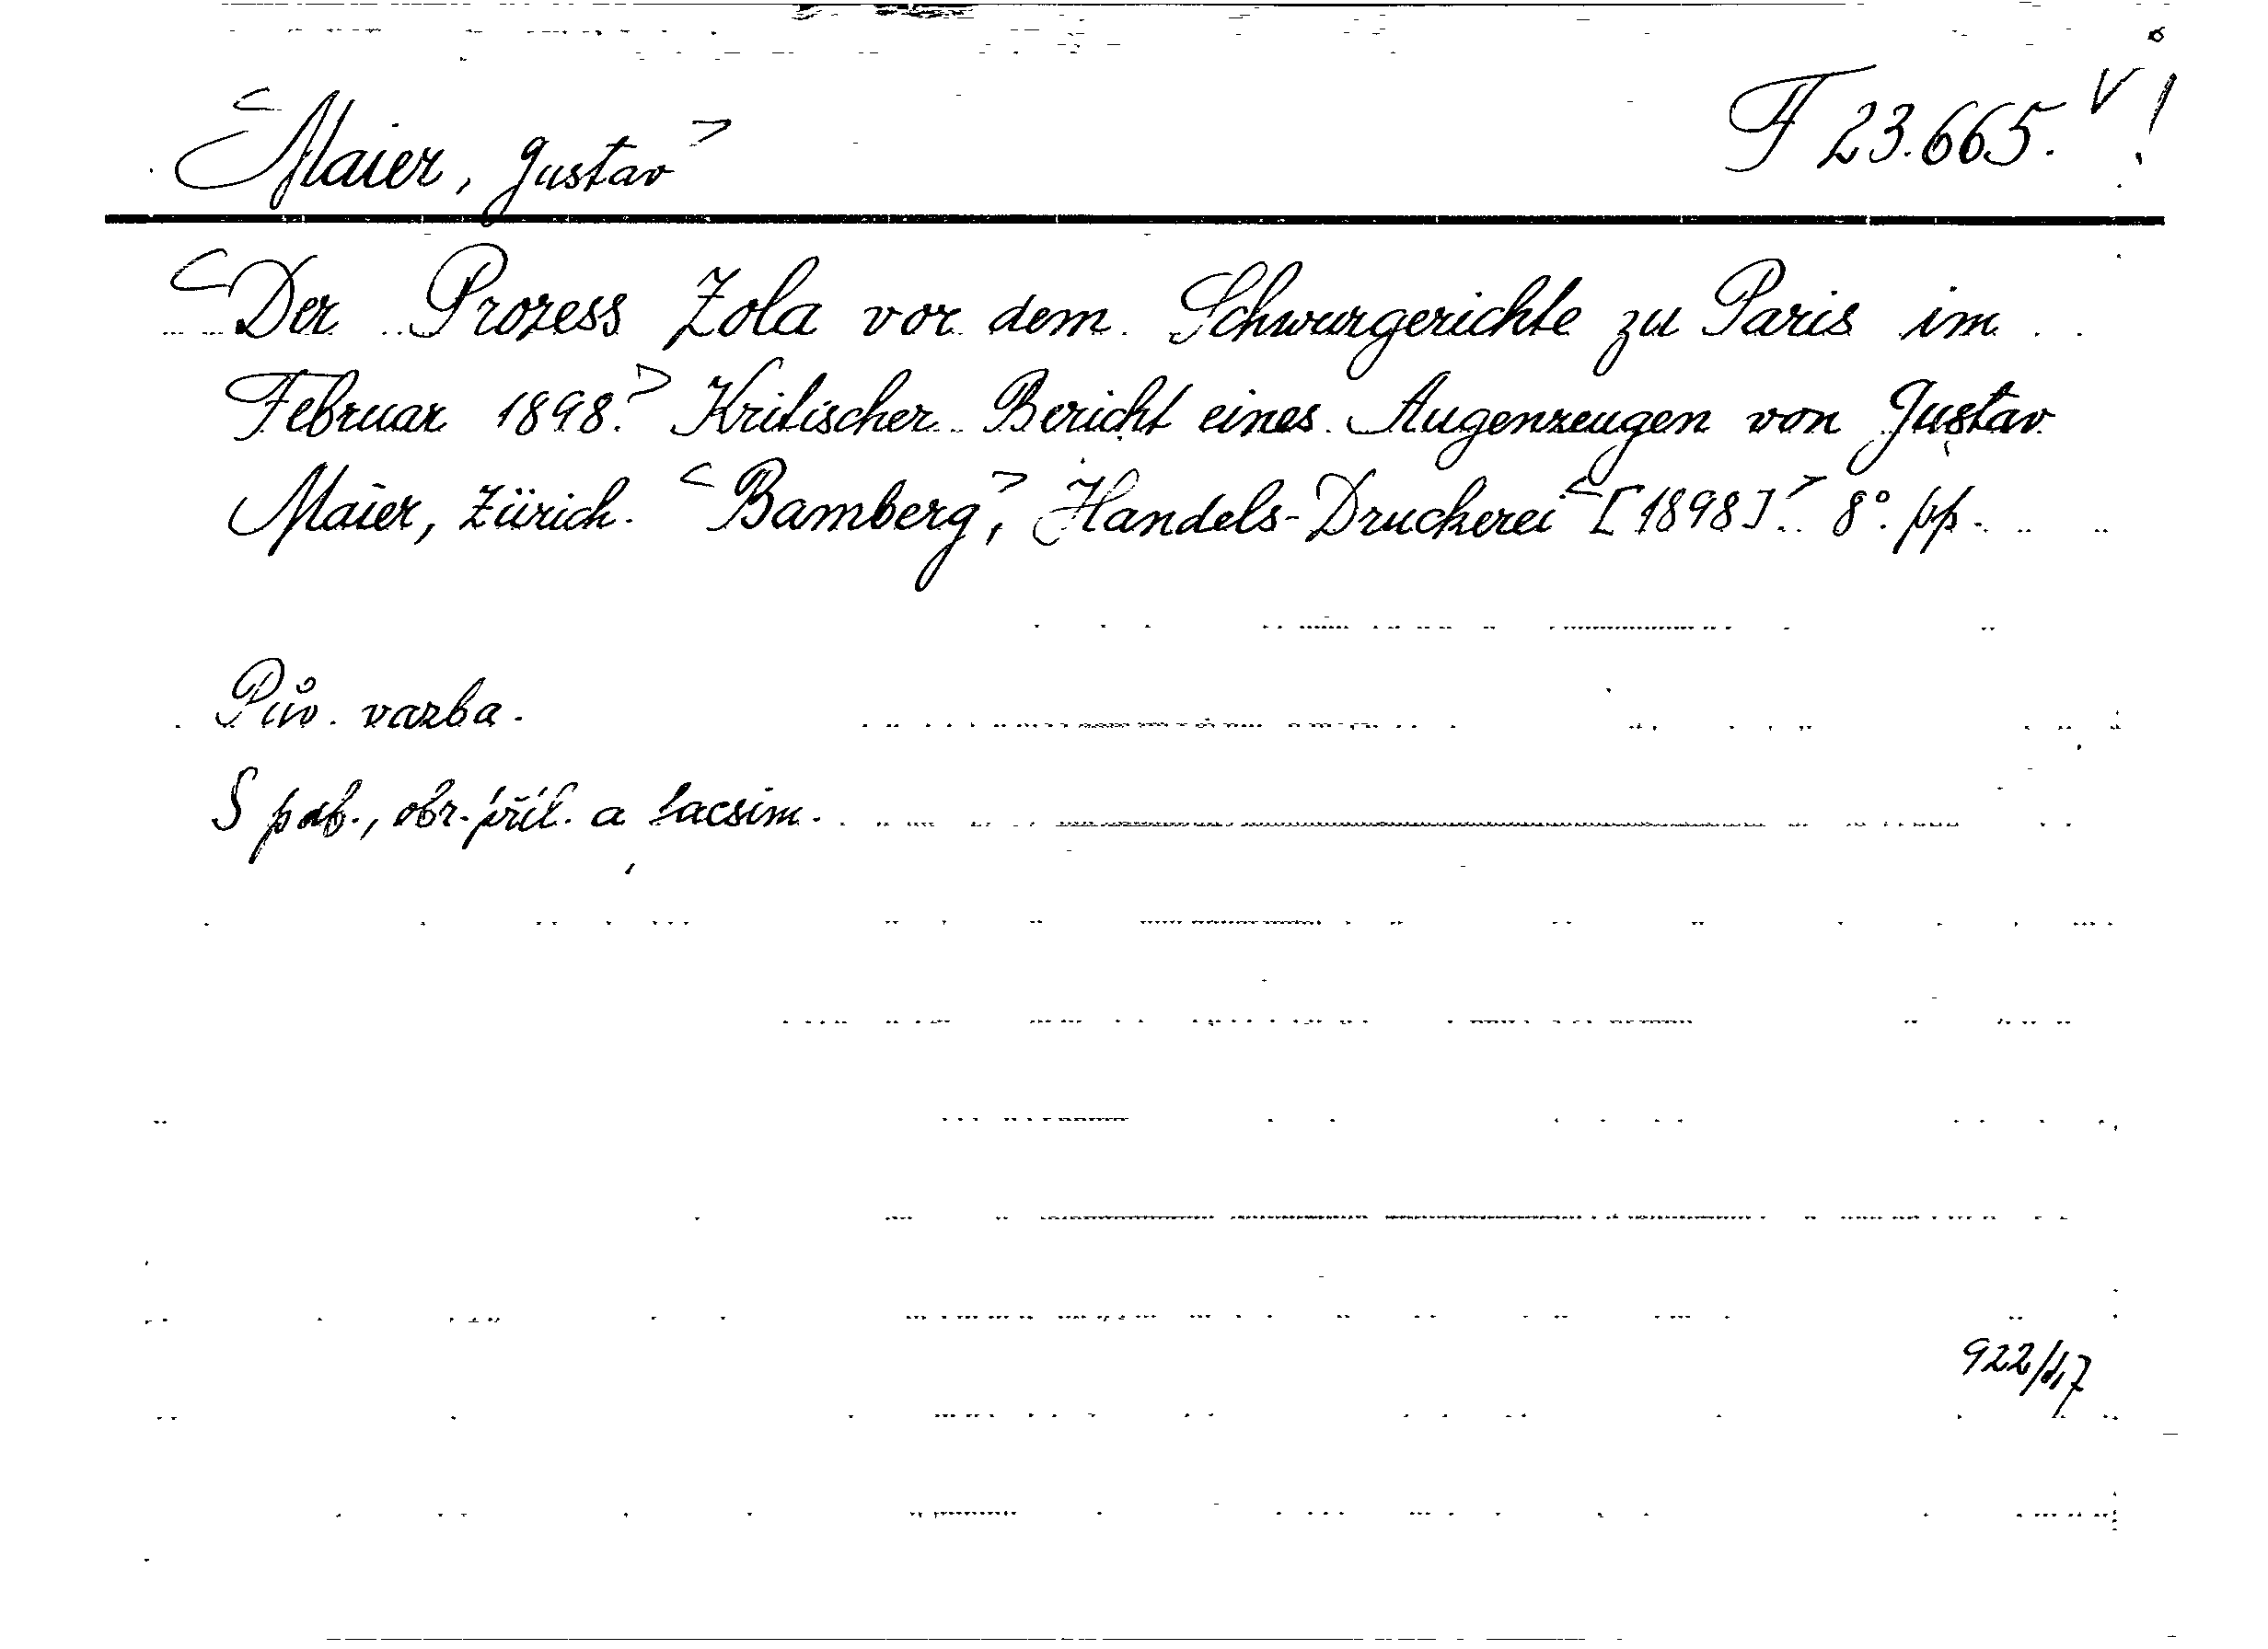 <Maier, Gustav> F 23.665. V!
<Der Prozess Zola vor dem Schwurgerichte zu Paris im
Februar 1898.> Kritischer Bericht eines Augenzeugen von Gustav
Maier, Zürich. <Bamberg>, Handels-Druckerei <[1898]>. 8°. pp.
Pův. vazba.
S pob., obr. příl. a facsim.
922/47